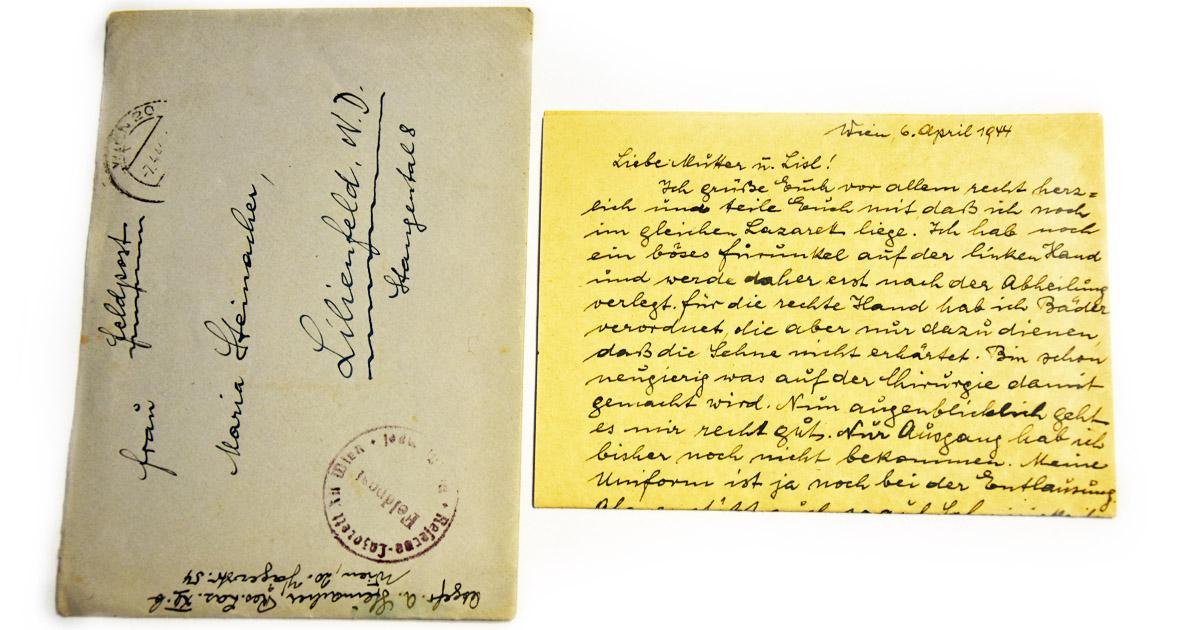 Feldpost
Frau
Maria Steinacher,
Lilienfeld, N.D.
Stangental 8
WIEN 20
Reserve-Lazarett Wien
Feldpost
Steinacher, Res. Laz.
Wien, 20. Jägerstr. 54
Wien, 6. April 1944
Liebe Mutter u. Lisl!
Ich grüße Euch vor allem recht herz=
lich und teile Euch mit daß ich noch
im gleichen Lazarett liege. Ich hab noch
ein böses Furunkel auf der linken Hand
und werde daher erst nach der Abheilung
verlegt. Für die rechte Hand hab ich Bäder
verordnet, die aber nur dazu dienen,
daß die Sehne nicht erhärtet. Bin schon
neugierig was auf der Chirurgie damit
gemacht wird. Nun augenblicklich geht
es mir recht gut. Nur Ausgang hab ich
bisher noch nicht bekommen. Meine
Uniform ist ja noch bei der Entlausung